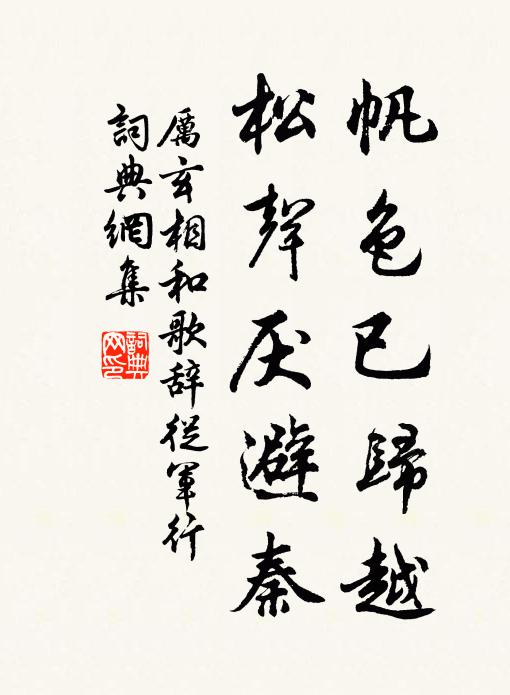 帆色已歸越
松聲厌避秦
厲玄相和歌辞從軍行
詞典網集
詞典網印